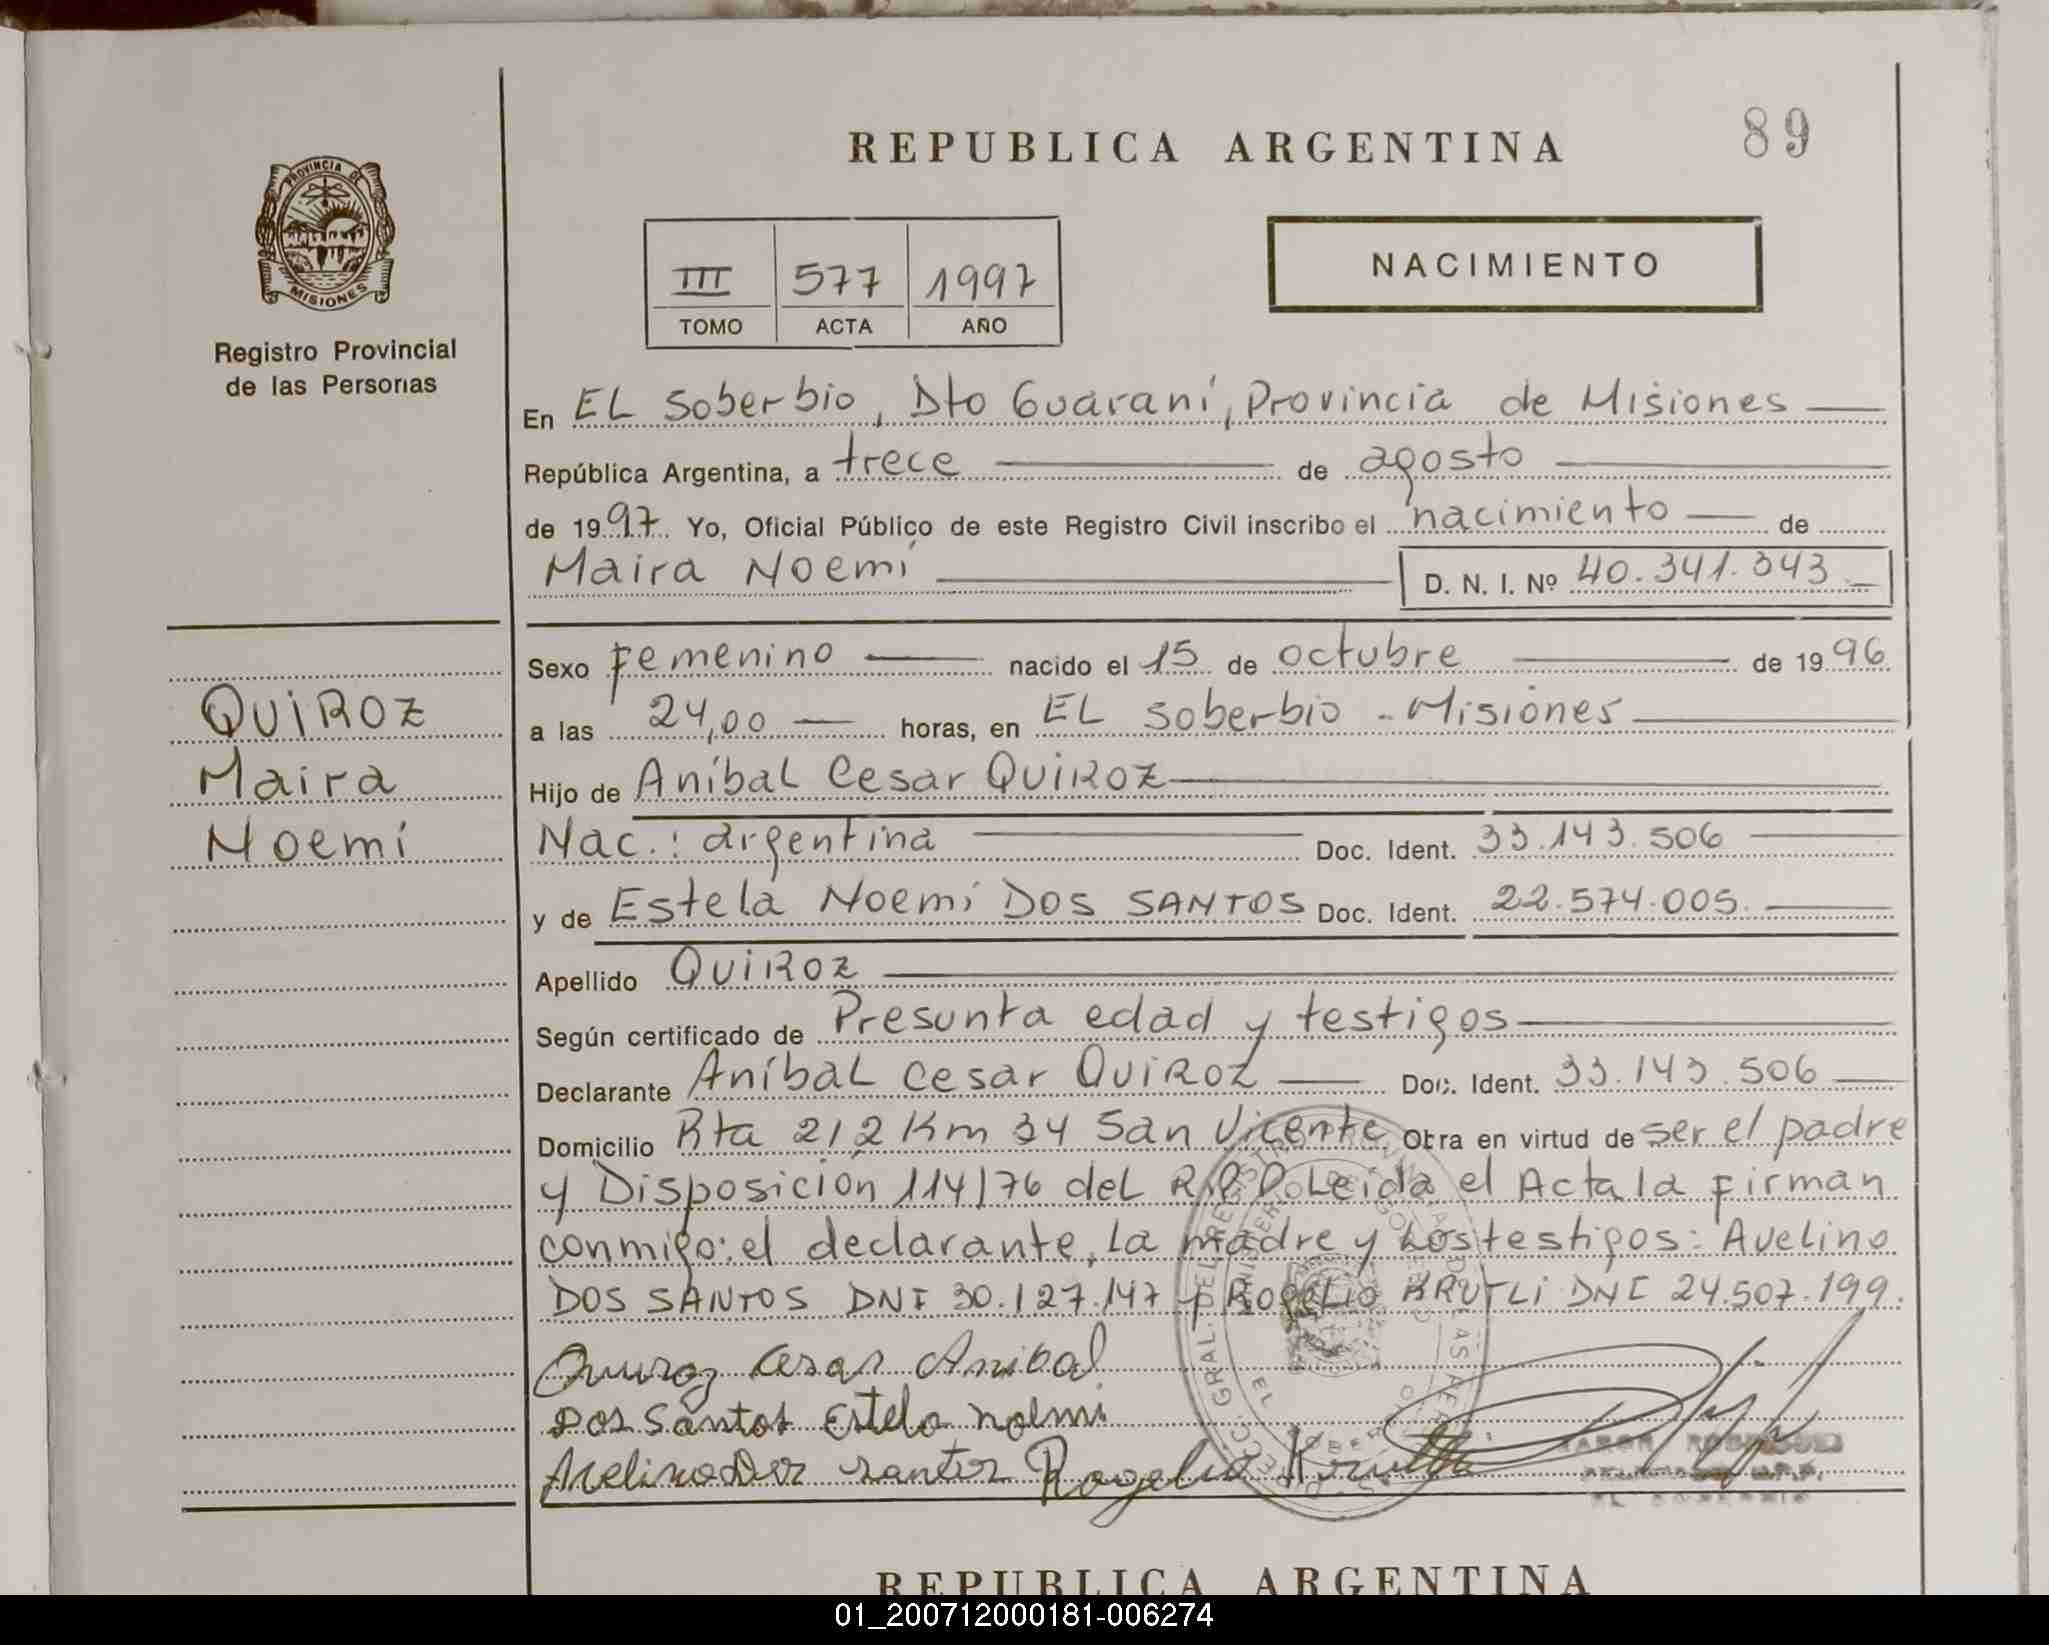 REPUBLICA ARGENTINA
89
PROVINCIA DE
MISIONES
Registro Provincial
de las Personas
III 577 1997
TOMO ACTA AÑO
NACIMIENTO
En EL Soberbio, Dto Guaraní, Provincia de Misiones
República Argentina, a trece de agosto
de 1997. Yo, Oficial Público de este Registro Civil inscribo el nacimiento de
Maira Noemí D. N. I. Nº 40.341.343
Sexo Femenino nacido el 15 de octubre de 1996
QUIROZ
a las 24,00 horas, en EL Soberbio - Misiones
Maira
Hijo de Aníbal Cesar QUIROZ
Noemí
Nac.: argentina Doc. Ident. 33.143.506
y de Estela Noemí DOS SANTOS Doc. Ident. 22.574.005.
Apellido QUIROZ
Según certificado de Presunta edad y testigos
Declarante Aníbal Cesar QUIROZ Doc. Ident. 33.143.506
Domicilio Rta 212 Km 34 San Vicente Obra en virtud de ser el padre
y Disposición 114/76 del R.P.P. Leída el Acta la firman
conmigo: el declarante, la madre y los testigos: Avelino
DOS SANTOS DNI 30.127.147 y Rogelio KRUTLI DNI 24.507.199.
Quiroz Cesar Anibal
Dos Santos Estela Noemi
Avelino Dos Santos Rogelio
REPUBLICA ARGENTINA
01_200712000181-006274